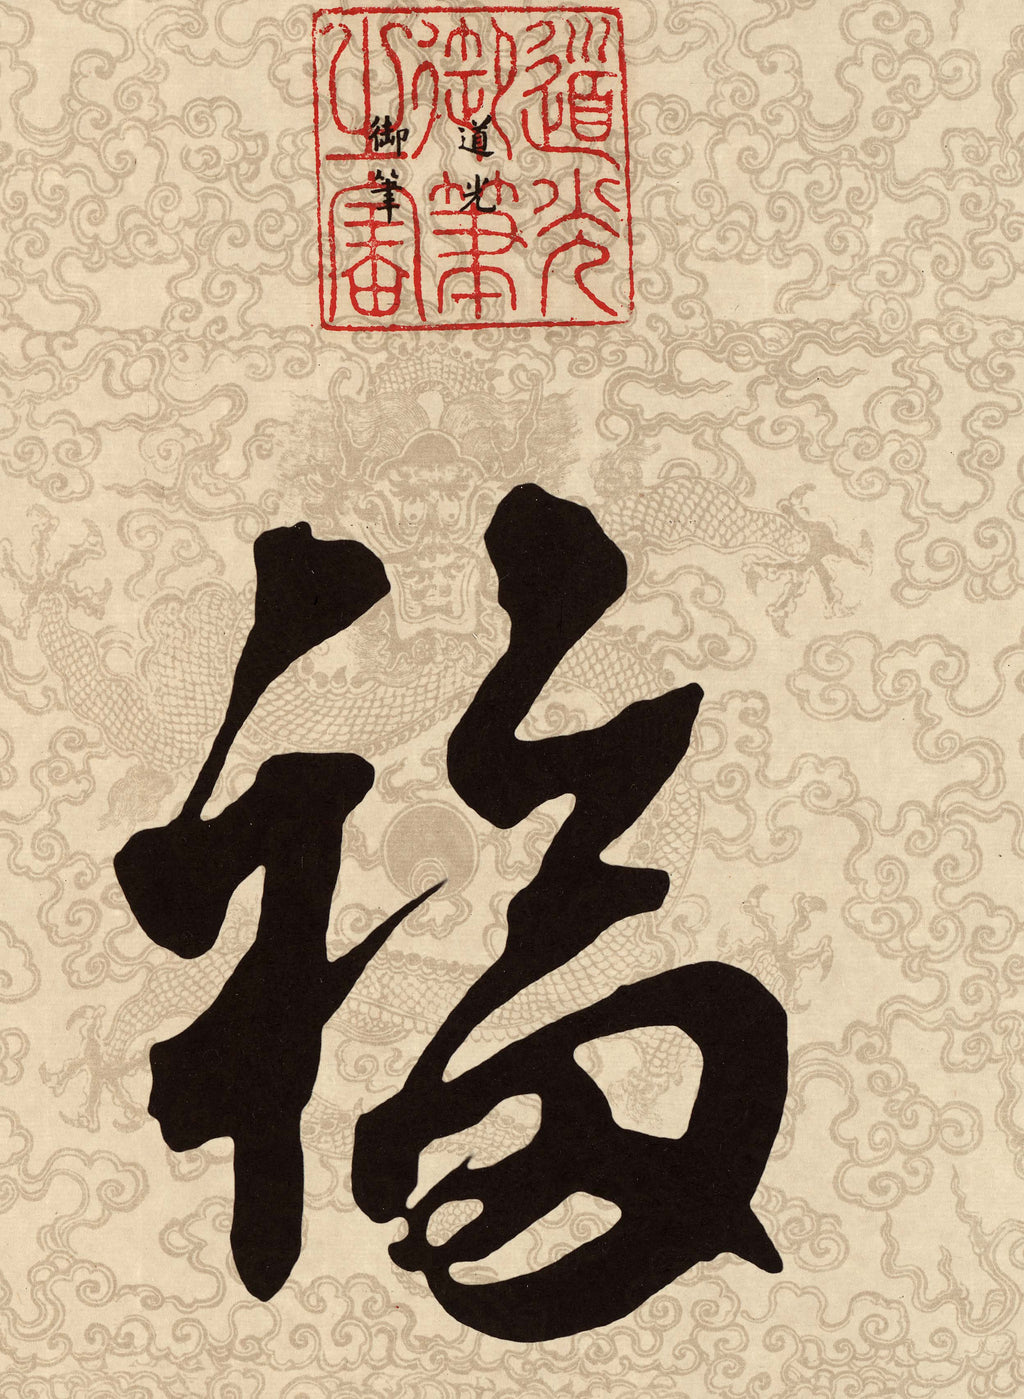 道光
御筆
之寶
道光
御筆
福